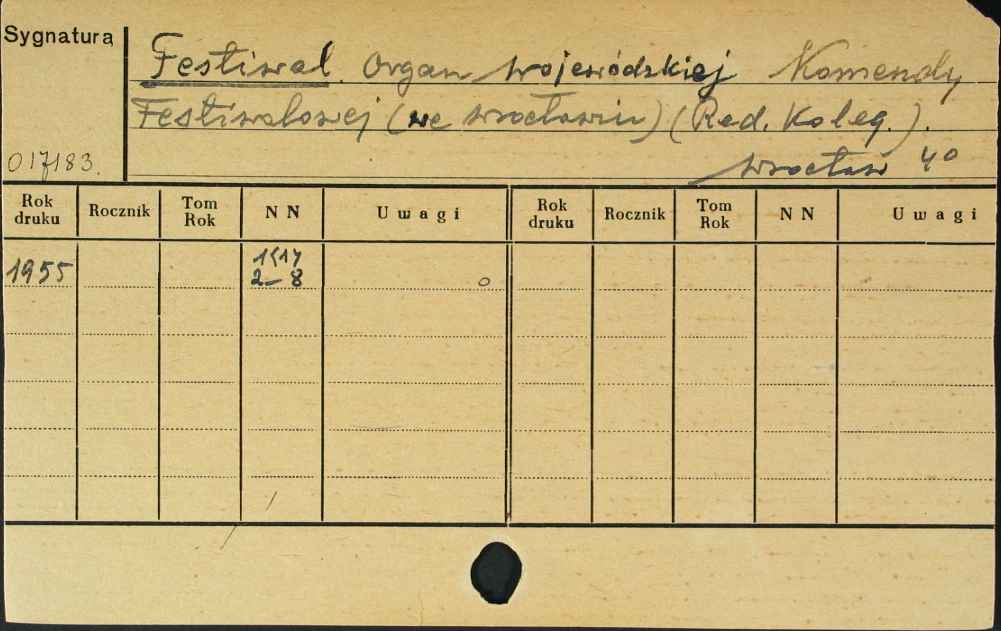 Sygnatura
Festiwal. Organ Wojewódzkiej Komendy
Festiwalowej (we Wrocławiu) (Red. Koleg.).
017183.
Wrocław 4°
Rok druku Rocznik Tom Rok NN Uwagi Rok druku Rocznik Tom Rok NN Uwagi
1955
2-8